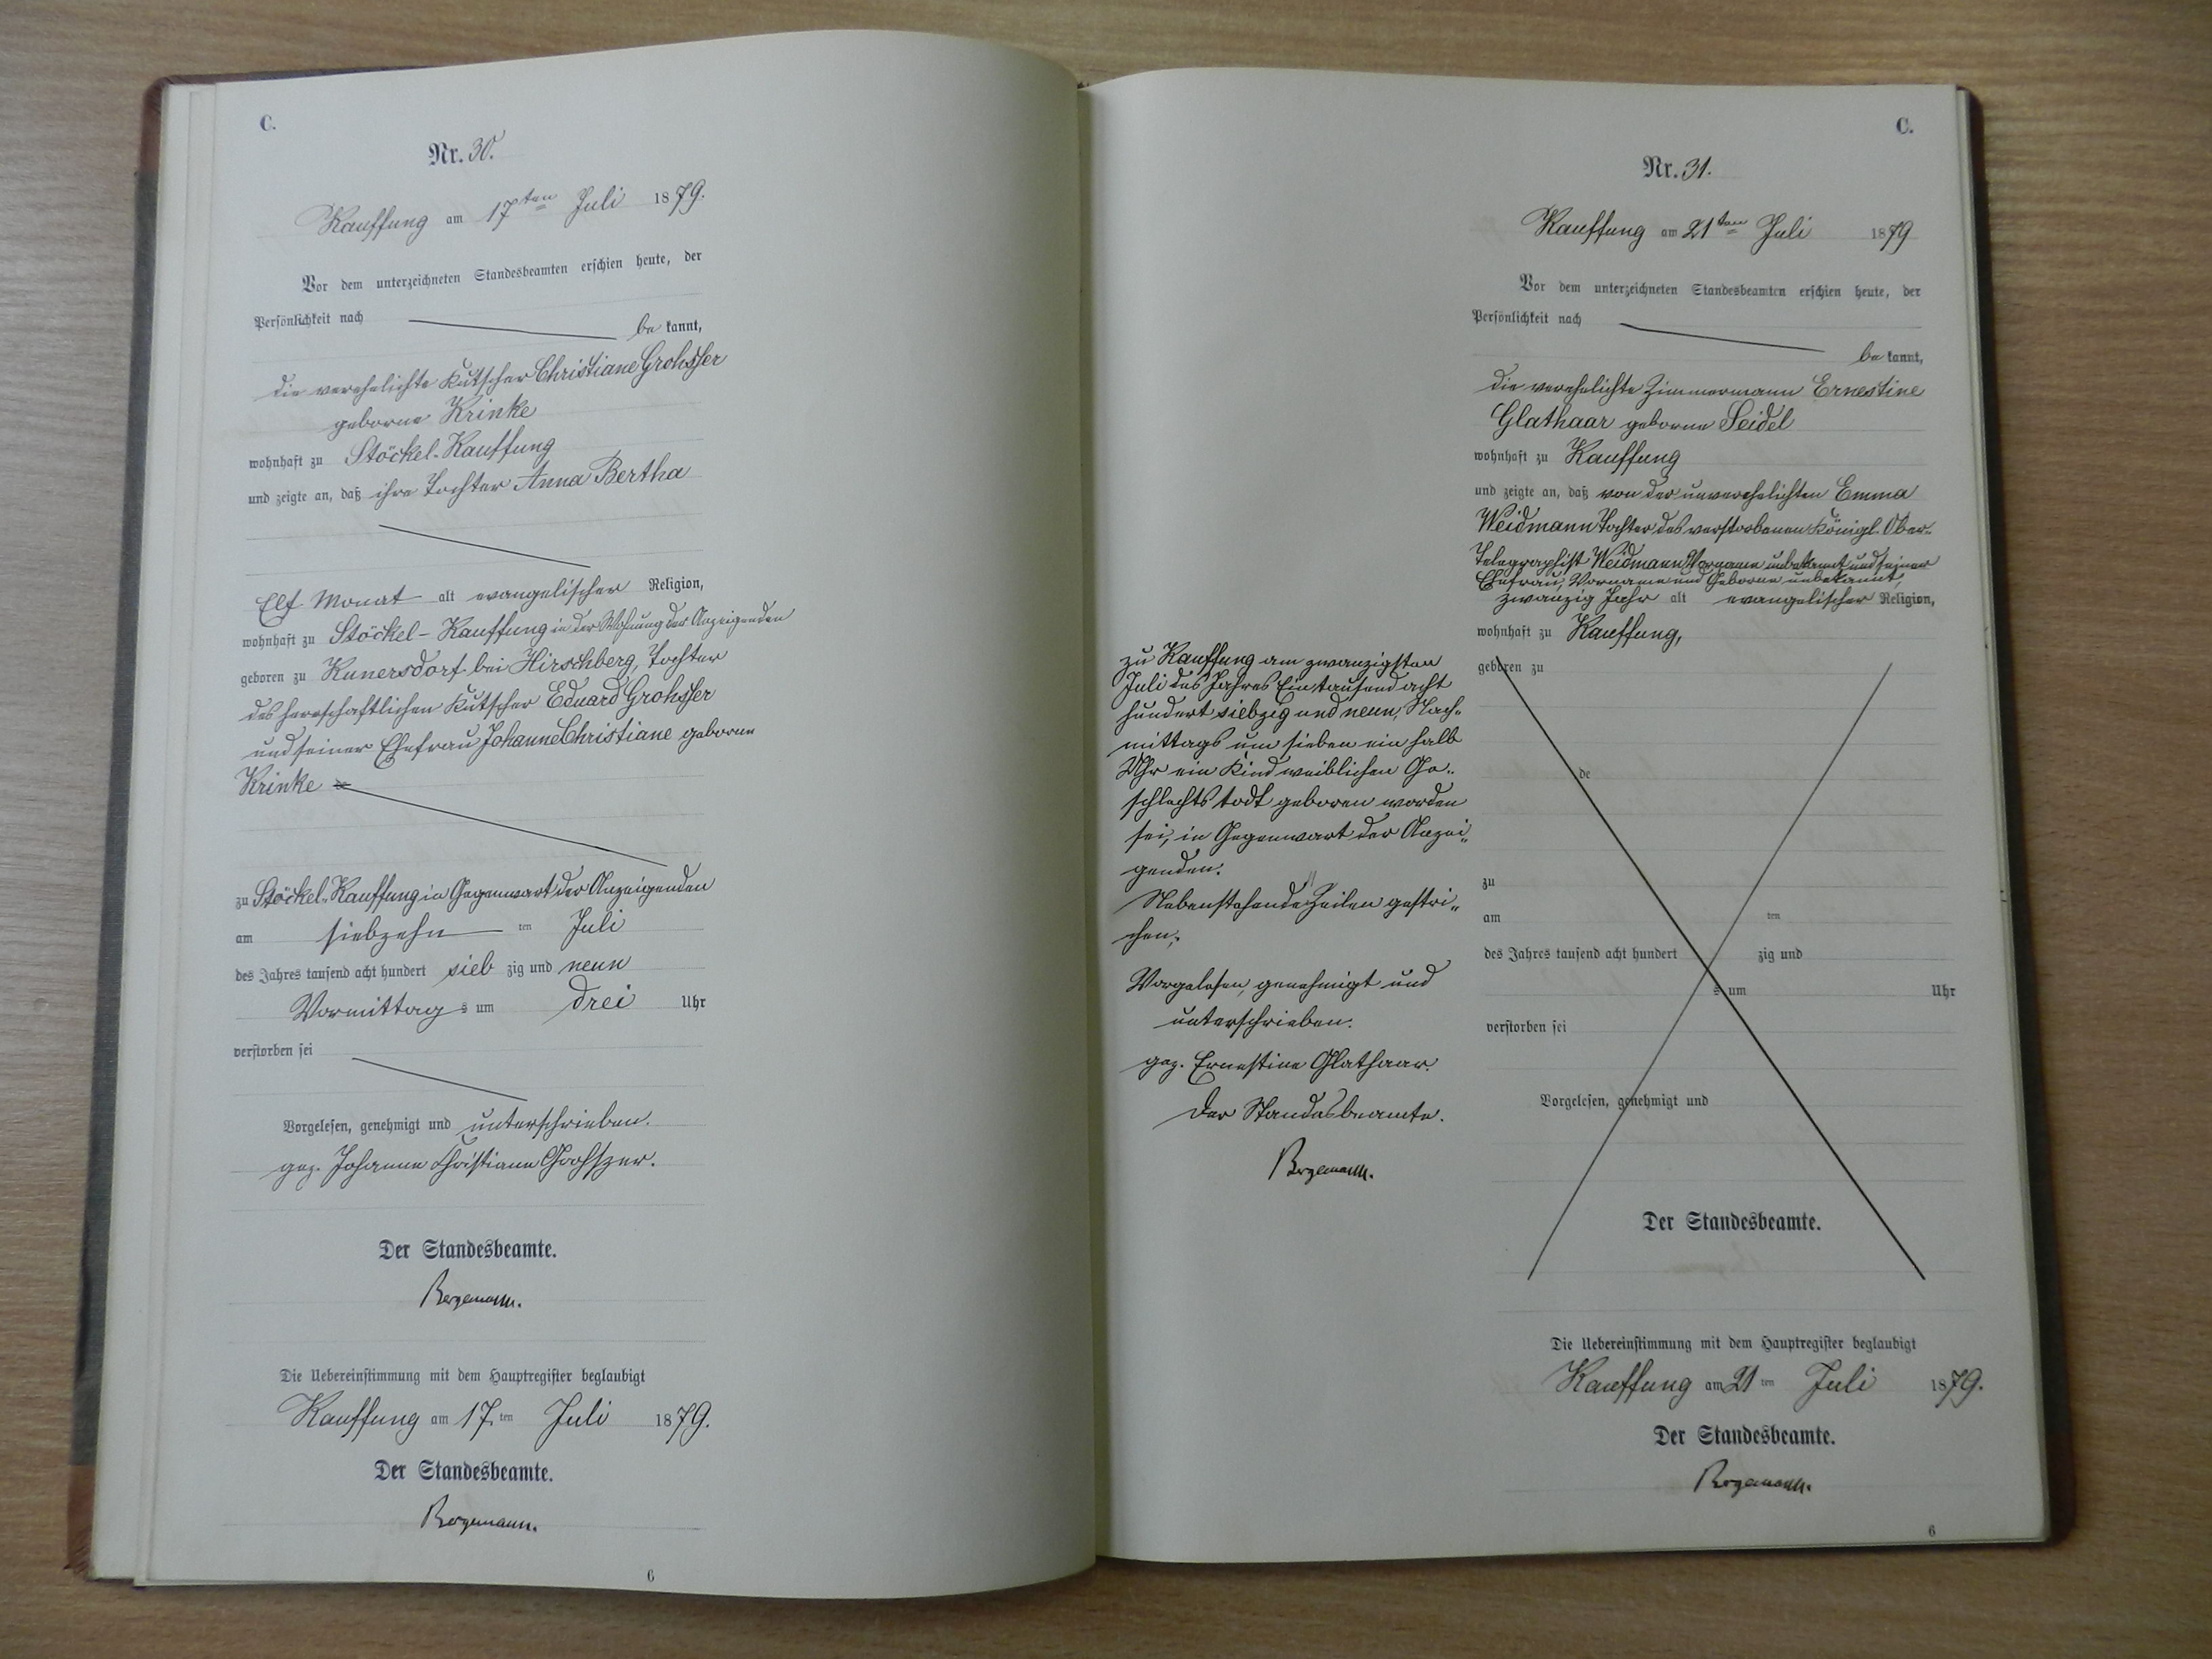 C.
Nr. 30.
Kauffung am 17ten Juli 1879.
Vor dem unterzeichneten Standesbeamten erschien heute, der
Persönlichkeit nach
be kannt,
die verehelichte Kutscher Christiane Grohsser
geborne Krinke
wohnhaft zu Stöckel-Kauffung
und zeigte an, daß ihre Tochter Anna Bertha
Elf Monat alt evangelischer Religion,
wohnhaft zu Stöckel-Kauffung in der Wohnung der Anzeigenden
geboren zu Kunersdorf bei Hirschberg, Tochter
des herrschaftlichen Kutscher Eduard Grohsser
und seiner Ehefrau Johanne Christiane geborne
Krinke
zu Stöckel-Kauffung in Gegenwart der Anzeigenden
am siebzehn ten Juli
des Jahres tausend acht hundert sieb zig und neun
Vormittag s um drei Uhr
verstorben sei
Vorgelesen, genehmigt und unterschrieben.
gez. Johanne Christiane Grohszer.
Der Standesbeamte.
Bergemann.
Die Uebereinstimmung mit dem Hauptregister beglaubigt
Kauffung am 17. ten Juli 1879.
Der Standesbeamte.
Bergemann.
6
C.
Nr. 31.
Kauffung am 21ten Juli 1879
Vor dem unterzeichneten Standesbeamten erschien heute, der
Persönlichkeit nach
be kannt,
die verehelichte Zimmermann Ernestine
Glathaar geborne Seidel
wohnhaft zu Kauffung
und zeigte an, daß von der unverehelichten Emma
Weidmann Tochter des verstorbenen Königl. Ober-
Telegraphist Weidmann, Vorname unbekannt und seiner
Ehefrau, Vorname und Geborne unbekannt,
zwanzig Jahr alt evangelischer Religion,
wohnhaft zu Kauffung,
zu Kauffung am zwanzigsten
Juli des Jahres Eintausend acht
hundert siebzig und neun, Nach-
mittags um sieben ein halb
Uhr ein Kind weiblichen Ge-
schlechts todt geboren worden
sei, in Gegenwart der Anzei-
genden.
Nebenstehende Zeilen gestri-
chen.
Vorgelesen, genehmigt und
unterschrieben.
gez. Ernestine Glathaar.
Der Standesbeamte.
Bergemann.
geboren zu
de
zu
am ten
des Jahres tausend acht hundert zig und
s um Uhr
verstorben sei
Vorgelesen, genehmigt und
Der Standesbeamte.
Die Uebereinstimmung mit dem Hauptregister beglaubigt
Kauffung am 21 ten Juli 1879.
Der Standesbeamte.
Bergemann.
6